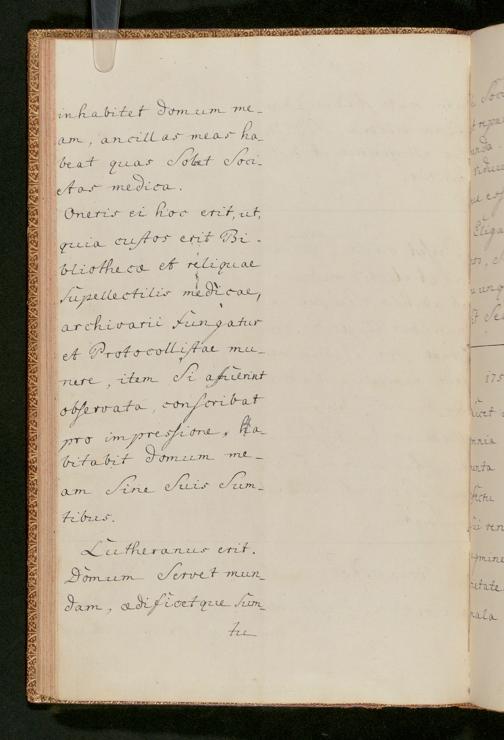 inhabitet domum me-
am, ancillas meas ha-
beat quas Solet Soci-
etas medica.
Oneris ei hoc erit, ut,
quia custos erit Bi-
bliothecæ et reliquae
Supellectilis medicae,
archivarii Fungatur
et Protocollistae mu-
nere, item Si afuerint
observata, conscribat
pro impressione. Ha-
bitabit domum me-
am Sine Suis Sum-
tibus.
Lutheranus erit.
Domum Servet mun-
dam, ædificetque Sum-
tu
175